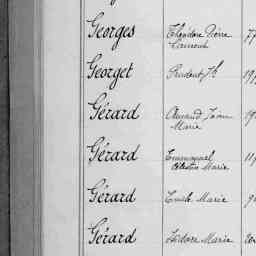 Georges Théodore Pierre 77
Georget Prudent 19
Gérard Armand Jean 19
Marie
Gérard Emmanuel 11
Célestin Marie
Gérard Emile Marie 9
Gérard Isidore Marie